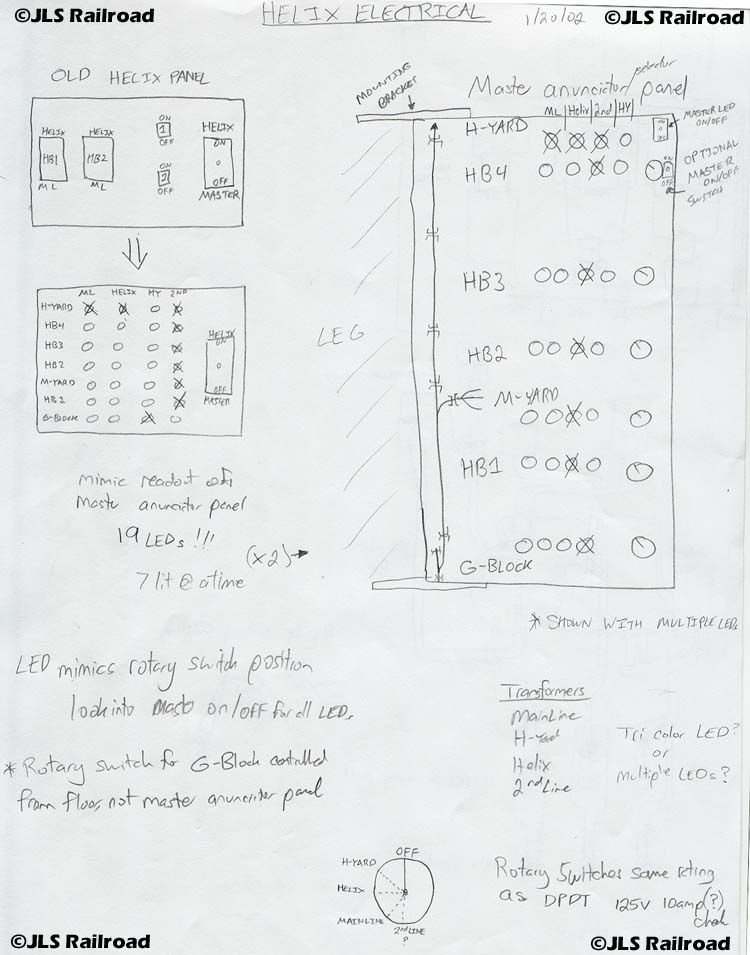 ©JLS Railroad
HELIX ELECTRICAL
1/20/02
©JLS Railroad
OLD HELIX PANEL
HELIX
HB1
ML
HELIX
HB2
ML
ON
1
OFF
ON
2
OFF
HELIX
ON
OFF
MASTER
ML HELIX HY 2ND
H-YARD
HB4
HB3
HB2
M-YARD
HB1
G-BLOCK
HELIX
ON
OFF
MASTER
mimic readout of
Maste anunciter panel
19 LEDs !!!
(x2)
7 lit @ a time
MOUNTING
BRACKET
selector
Maste anuncictor panel
ML Helix 2nd HY
MASTER LED
ON/OFF
H-YARD
HB4
OPTIONAL
MASTER
ON/OFF
SWITCH
ON
OFF
HB3
LEG
HB2
M-YARD
HB1
G-BLOCK
* SHOWN WITH MULTIPLE LEDs
LED mimics rotary switch position
look into Maste on/off for all LEDs
* Rotary switch for G-Block controlled
from floor, not master anunciter panel
Transformers
MainLine
H-Yard
Helix
2nd Line
Tri color LED?
or
Multiple LEDs?
OFF
H-YARD
HELIX
MAINLINE
2ND LINE
?
Rotary Switches same rating
as DPDT 125V 10amp(?)
check
©JLS Railroad
©JLS Railroad